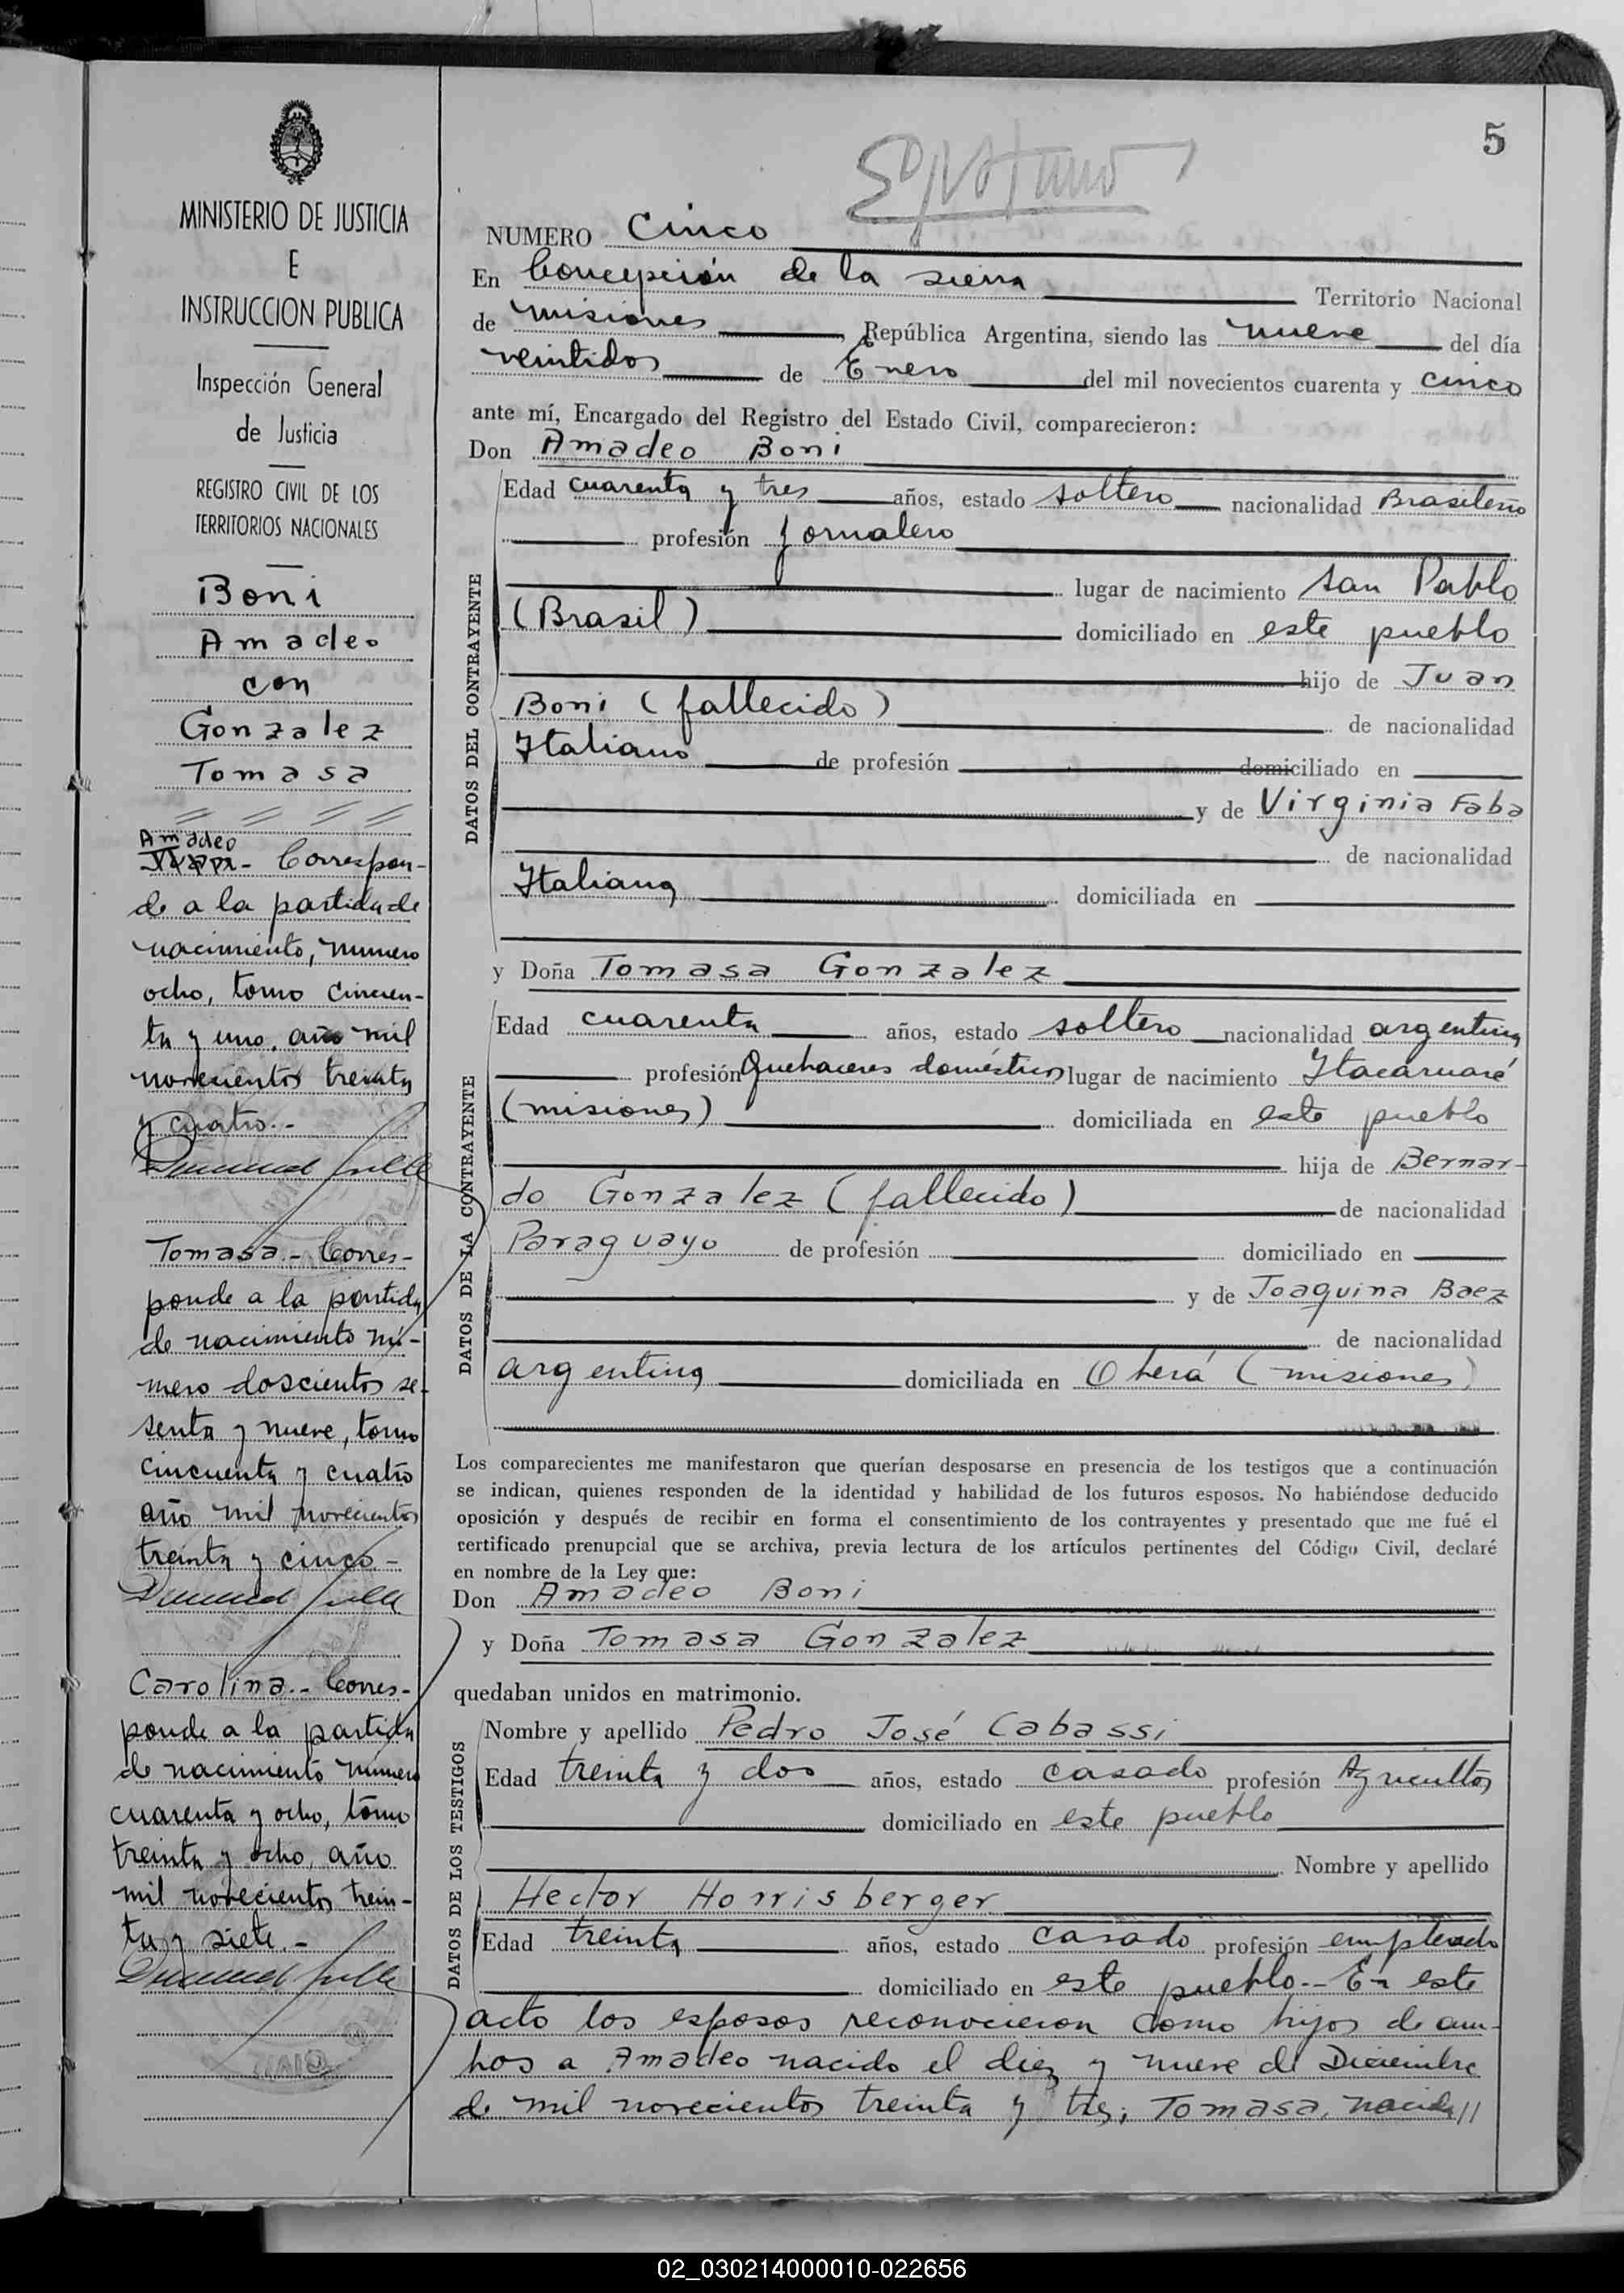 MINISTERIO DE JUSTICIA
E
INSTRUCCION PUBLICA
Inspección General
de Justicia
REGISTRO CIVIL DE LOS
TERRITORIOS NACIONALES
Boni
Amadeo
con
Gonzalez
Tomasa
Amadeo
- Correspon-
de a la partida de
nacimiento, numero
ocho, tomo cincuen-
ta y uno, año mil
novecientos treinta
y cuatro.-
Tomasa.- Corres-
ponde a la partida
de nacimiento nú-
mero doscientos se-
senta y nueve, tomo
cincuenta y cuatro
año mil novecientos
treinta y cinco-
Carolina.- Corres-
ponde a la partida
de nacimiento número
cuarenta y ocho, tomo
treinta y ocho, año
mil novecientos trein-
ta y siete.-
5
NUMERO Cinco
En Concepción de la sierra Territorio Nacional
de misiones, República Argentina, siendo las nueve del día
veintidos de Enero del mil novecientos cuarenta y cinco
ante mí, Encargado del Registro del Estado Civil, comparecieron:
Don Amadeo Boni
DATOS DEL CONTRAYENTE
Edad cuarenta y tres años, estado soltero nacionalidad Brasileño
profesión Jornalero
lugar de nacimiento San Pablo
(Brasil) domiciliado en este pueblo
hijo de Juan
Boni (fallecido) de nacionalidad
Italiano de profesión domiciliado en
y de Virginia Faba
de nacionalidad
Italiana domiciliada en
y Doña Tomasa Gonzalez
DATOS DE LA CONTRAYENTE
Edad cuarenta años, estado soltero nacionalidad argentina
profesión Quehaceres domésticos lugar de nacimiento Itacaruaré
(misiones) domiciliada en este pueblo
hija de Bernar-
do Gonzalez (fallecido) de nacionalidad
Paraguayo de profesión domiciliado en
y de Joaquina Baez
de nacionalidad
argentina domiciliada en Oberá (misiones)
Los comparecientes me manifestaron que querían desposarse en presencia de los testigos que a continuación
se indican, quienes responden de la identidad y habilidad de los futuros esposos. No habiéndose deducido
oposición y después de recibir en forma el consentimiento de los contrayentes y presentado que me fué el
certificado prenupcial que se archiva, previa lectura de los artículos pertinentes del Código Civil, declaré
en nombre de la Ley que:
Don Amadeo Boni
y Doña Tomasa Gonzalez
quedaban unidos en matrimonio.
DATOS DE LOS TESTIGOS
Nombre y apellido Pedro José Cabassi
Edad treinta y dos años, estado casado profesión Agricultor
domiciliado en este pueblo
Nombre y apellido
Hector Horrisberger
Edad treinta años, estado casado profesión empleado
domiciliado en este pueblo.- En este
acto los esposos reconocieron como hijos de am-
bos a Amadeo nacido el diez y nueve de Diciembre
de mil novecientos treinta y tres; Tomasa, nacida //
02_030214000010-022656